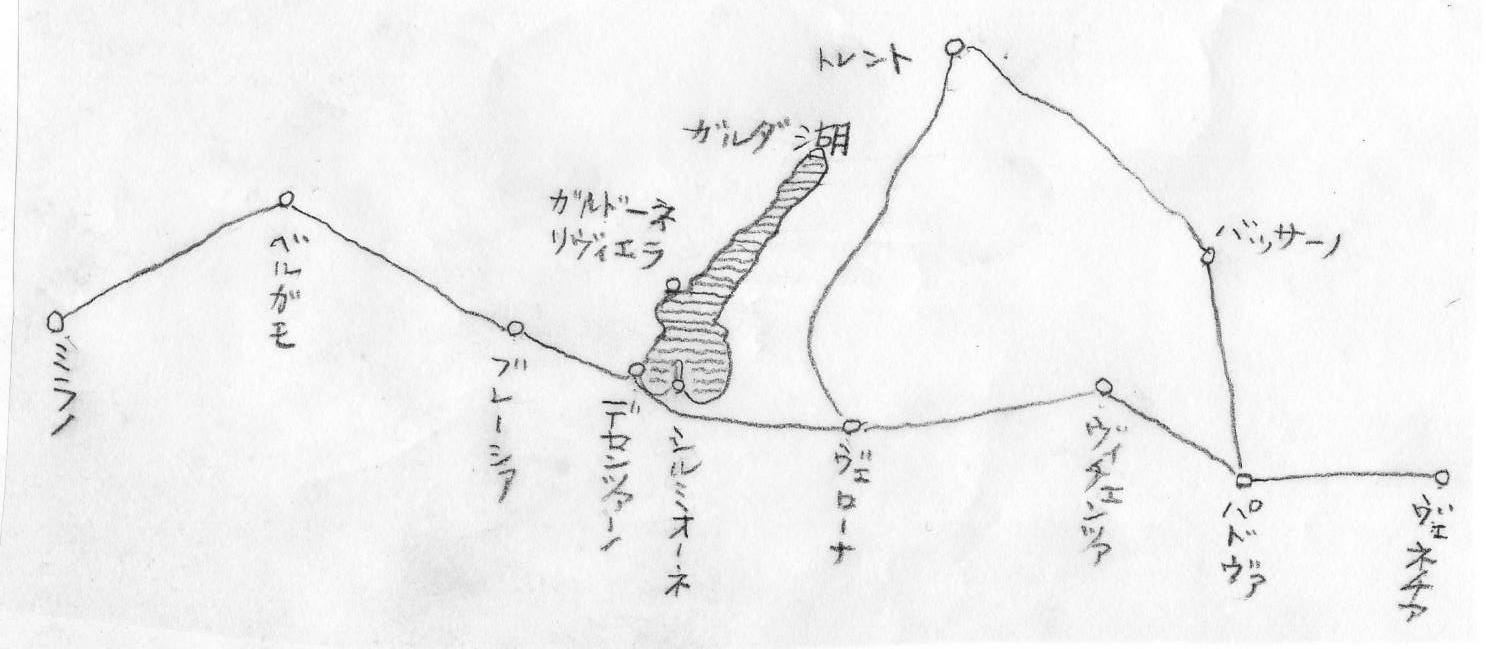 トレント
ガルダ湖
ガルドーネ
リヴィエラ
バッサーノ
ベルガモ
ミラノ
ブレーシア
デセンツァーノ
シルミオーネ
ヴェローナ
ヴィチェンツァ
パドヴァ
ヴェネチア